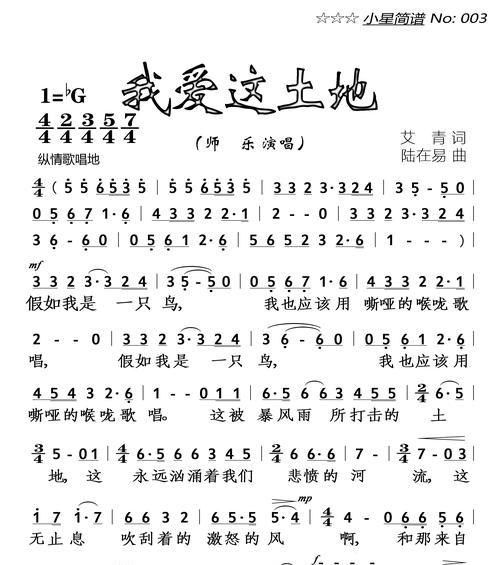 ☆☆☆ 小星简谱 No: 003
我爱这土地
1=♭G
4/4 2/4 3/4 5/4 7/4
(师 乐演唱)
艾 青 词
纵情歌唱地
陆在易 曲
4/4 ( 5 5 6535 | 5 5 6535 | 3323·324 | 35-50
0567 1·6 | 4333 22·1 | 2--0 | 3323·324
36-60 | 0561 2·6 | 5652 32·6 | 1---)
mf
3323·324 | 35-50 | 0567 1·6 | 4333 22·1
假如我是 一只 鸟, 我也应该用 嘶哑的喉咙歌
2--0 | 3323·324 | 36-60 | 0561 2·6
唱, 假如我是 一只 鸟, 我也应该用
4543 32·6 | 1--011 | 6·56 6345 | 2/4 6·5
嘶哑的喉咙歌 唱。 这被 暴风雨 所打击的 土
3/4 5-01 | 4/4 6·566345 | 2/4 6·6 7· | 3/4 7-03
地, 这 永远汹涌着我们 悲愤的 河 流, 这
mp
17 1·7 | 6632 | 65·5 5·4 | 4/4 4-0656
无止息 吹刮着的 激怒的风 啊, 和那来自
f